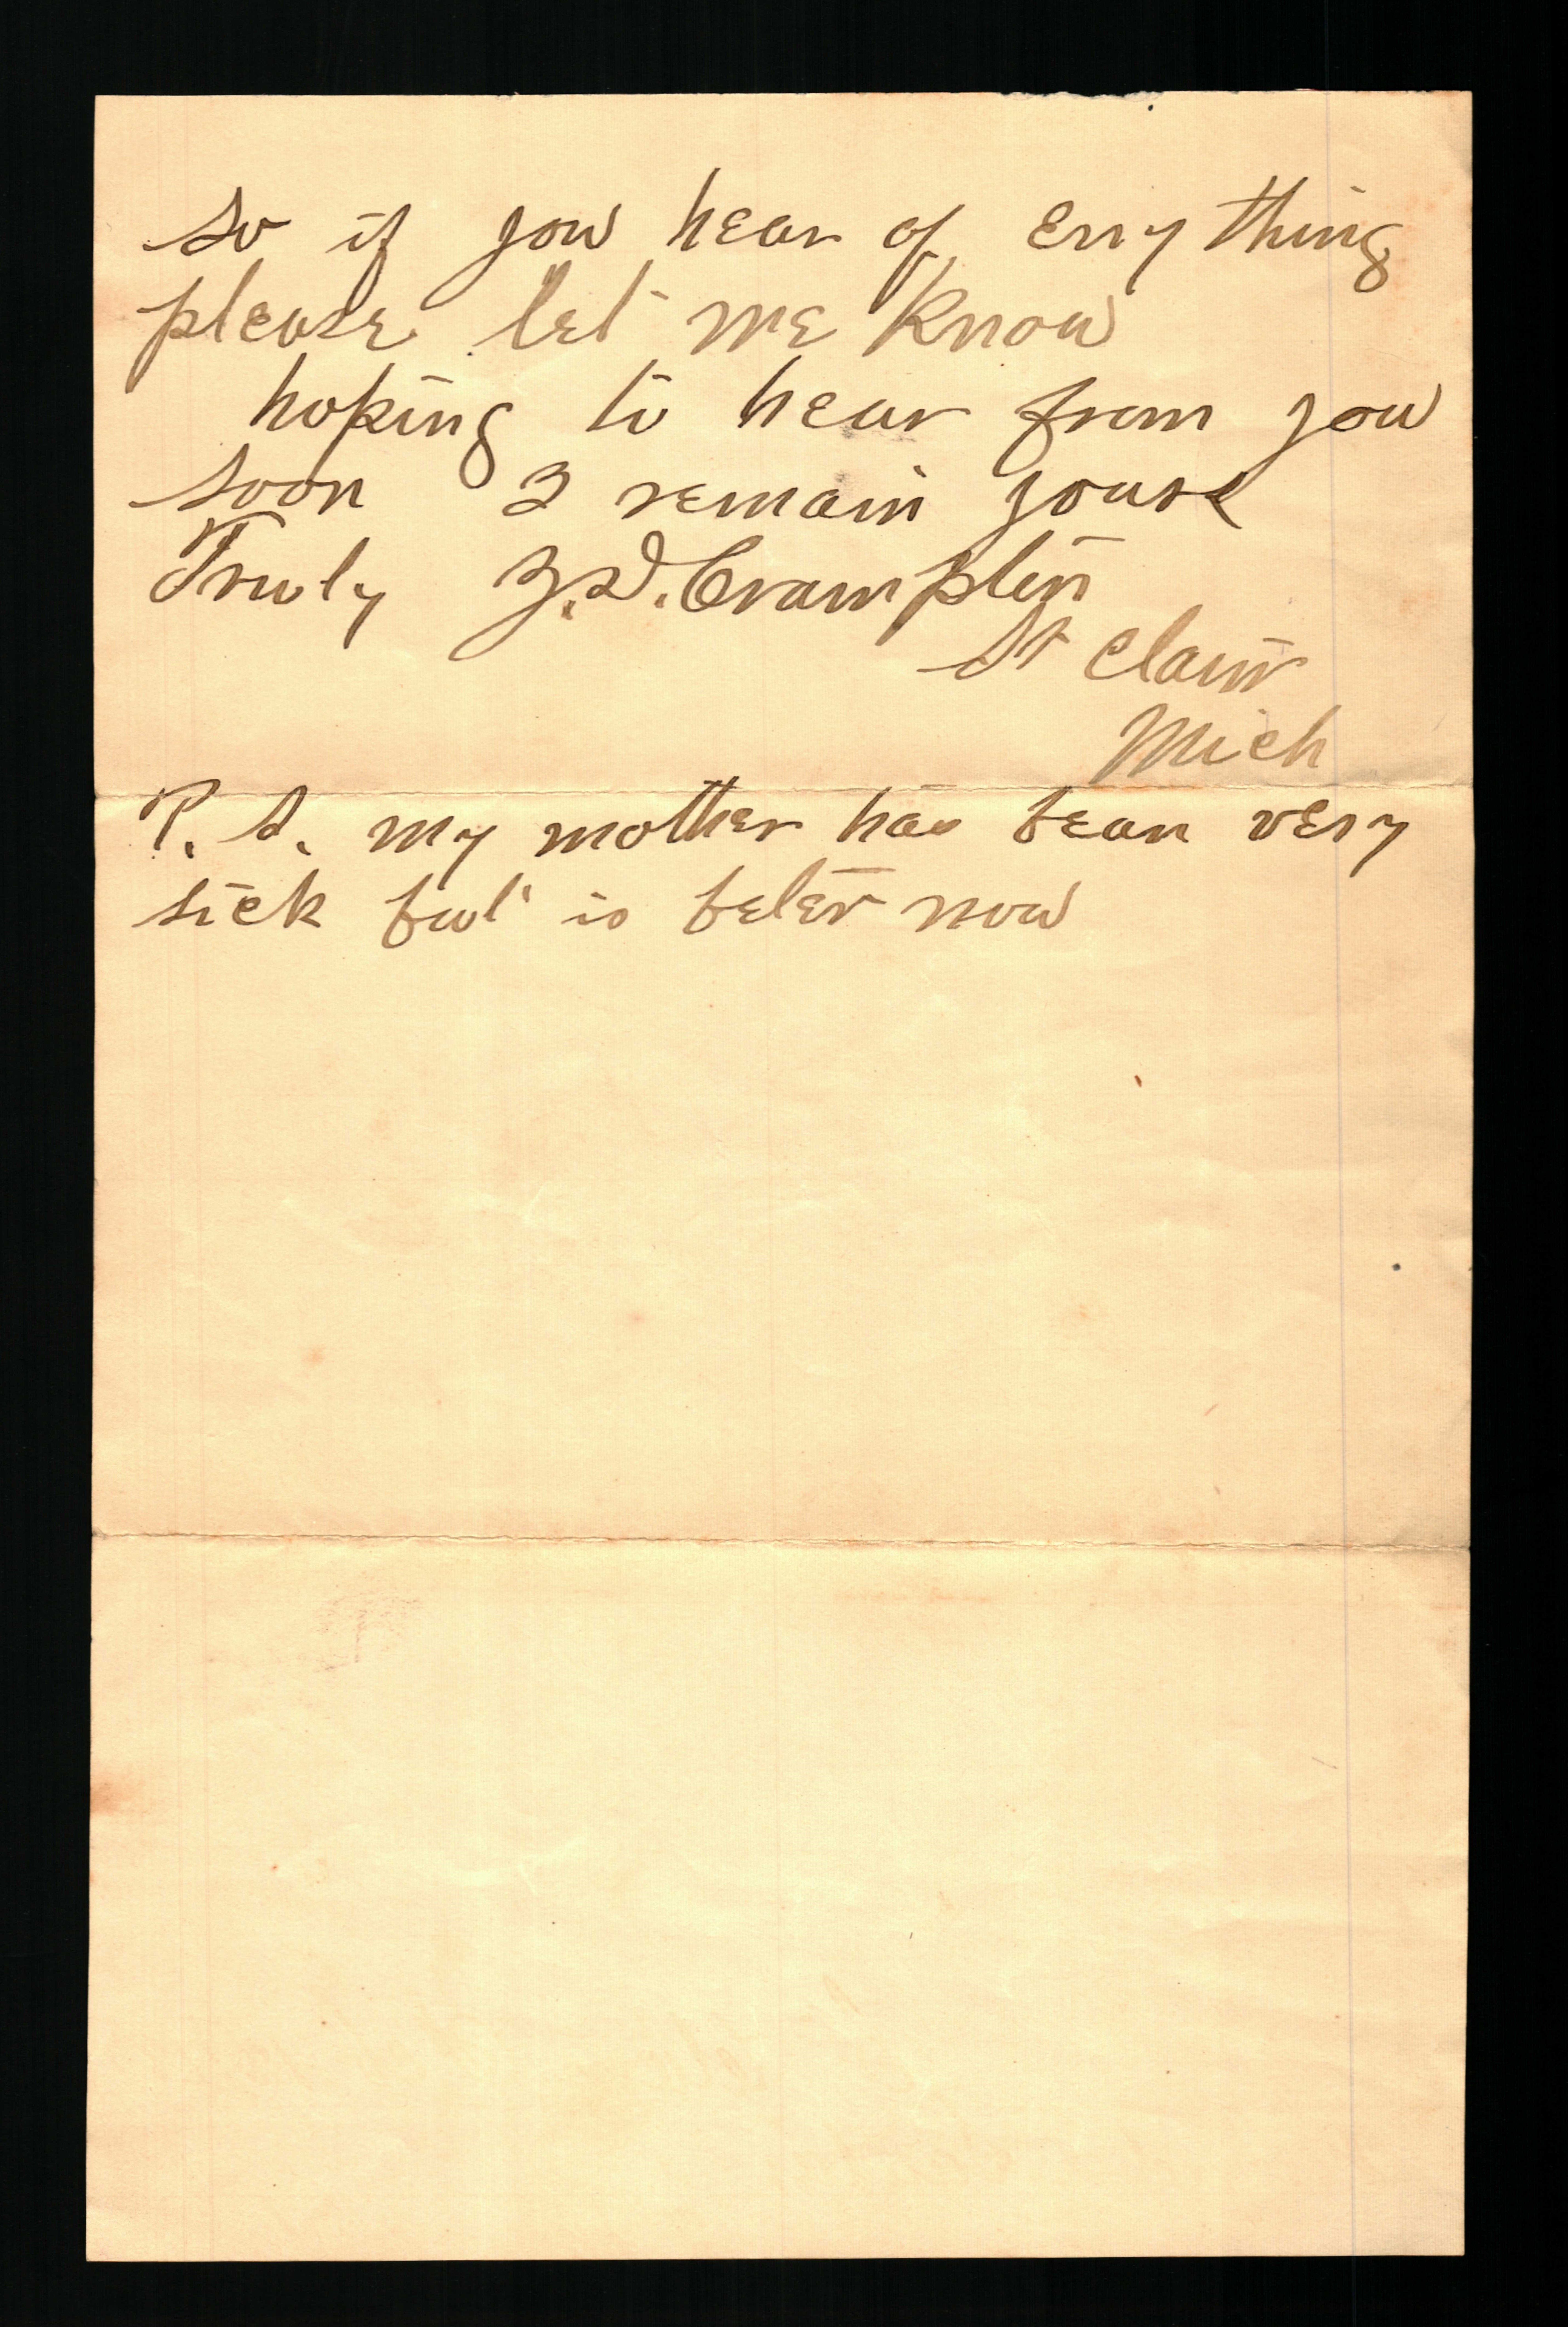 so if you hear of enything
please let me Know
hoping to hear from you
soon I remain yours
Truly J.D. Cramptin
St Clair
Mich
P. S. my mother has bean very
sick but is beter now